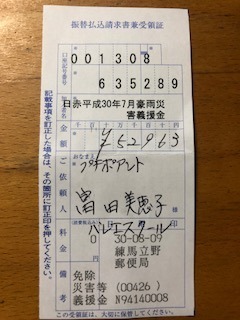 振替払込請求書兼受領証
口座記号番号
001308
635289
日赤平成30年7月豪雨災
害義援金
金額
千百十万千百十円
¥52963
ご依頼人
おなまえ
冨田美恵子
バレエスクール
料金
0円
備考
30-08-09
練馬立野
郵便局
免除
災害等 (00426)
義援金 N94140008
記載事項を訂正した場合は、その箇所に訂正印を押してください。
この受領証は、大切に保管してください。